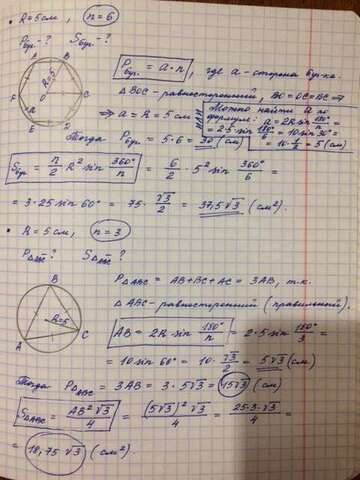 • R = 5 см, n = 6
Pбур. - ? Sбур. - ?
A B C D E F O R=5
Pбур. = a · n, где a - сторона бур-ка.
△BOC - равносторонний, BO = OC = BC ⇒
⇒ a = R = 5 см
или
Можно найти a по
формуле: a = 2R sin 180°/n =
= 2·5 sin 180°/6 = 10 sin 30° =
= 10 · 1/2 = 5 (см)
Тогда Pбур. = 5 · 6 = 30 (см)
Sбур. = n/2 R² · sin 360°/n = 6/2 · 5² · sin 360°/6 =
= 3 · 25 sin 60° = 75 · √3/2 = 37,5√3 (см²)
• R = 5 см, n = 3
P△ABC ? S△ABC ?
A B C R=5
P△ABC = AB + BC + AC = 3AB, т.к.
△ABC - равносторонний (правильный).
AB = 2R sin 180°/n = 2 · 5 sin 180°/3 =
= 10 sin 60° = 10 · √3/2 = 5√3 (см)
Тогда P△ABC = 3AB = 3 · 5√3 = 15√3 (см)
S△ABC = AB²√3/4 = (5√3)²√3/4 = 25·3·√3/4 =
= 18,75√3 (см²).